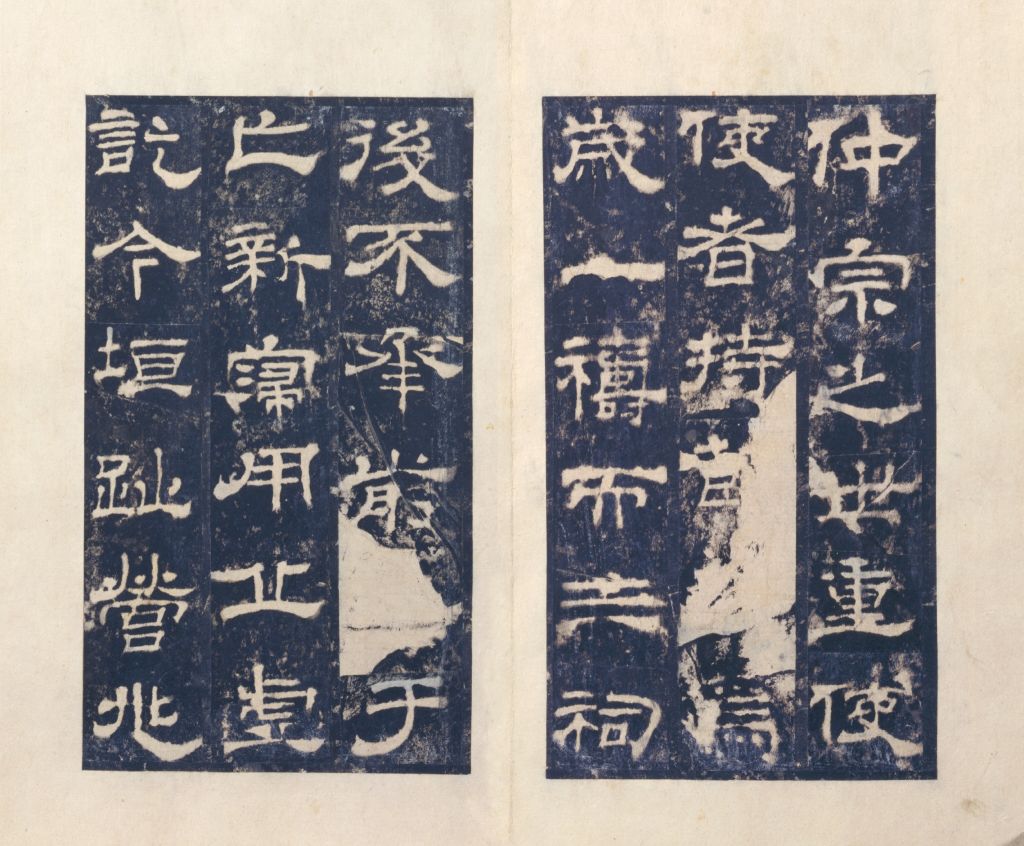 仲宗之世重使
使者持焉
歲一禱而三祠
後不承前于
亡新寖用丘虛
訖今垣趾營兆